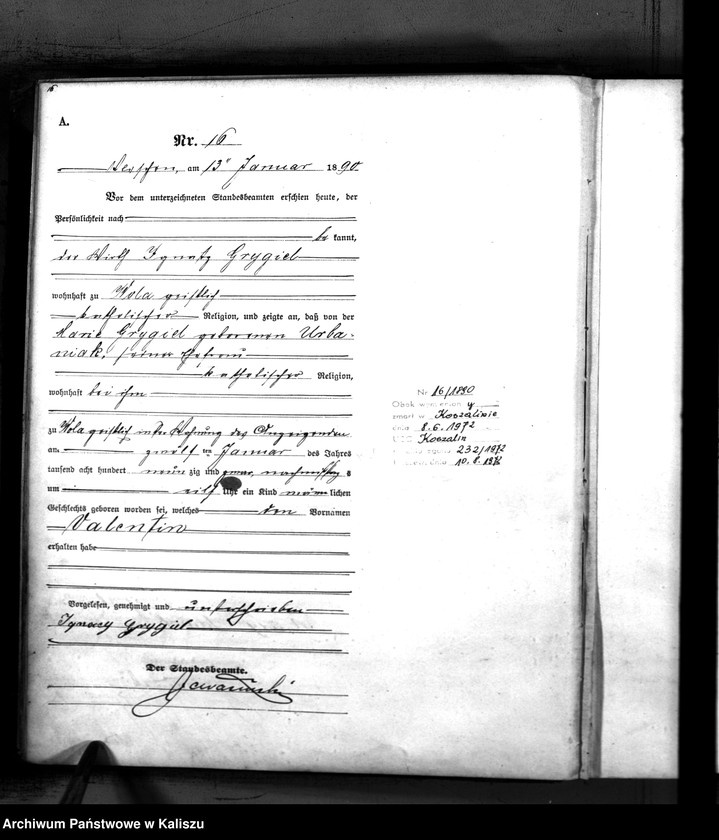 16
A.
Nr. 16
am 13ten Januar 1890
Vor dem unterzeichneten Standesbeamten erschien heute, der
Persönlichkeit nach
be kannt,
der Wirth Ignatz Grygiel
wohnhaft zu Wola geistlich
katholischer Religion, und zeigte an, daß von der
Marie Grygiel geborenen Urba-
niak, seiner Ehefrau
katholischer Religion,
wohnhaft bei ihm
zu Wola geistlich in der Wohnung des Anzeigenden
am zwölf ten Januar des Jahres
tausend acht hundert neun zig und zwar nachmittags
um eilf Uhr ein Kind männlichen
Geschlechts geboren worden sei, welches den Vornamen
Valentin
erhalten habe
Vorgelesen, genehmigt und unterschrieben
Ignacy Grygiel
Der Standesbeamte.
Nr 16/1890
Obok wymieniony
zmarł w Koszalinie
dnia 8.6.1972
USC Koszalin
232/1972
dnia 10.8.1972
Archiwum Państwowe w Kaliszu